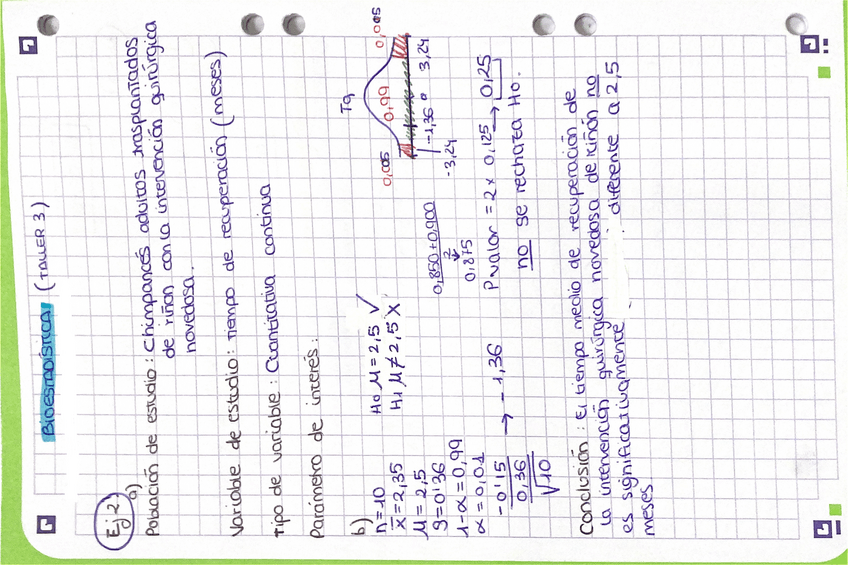 BIOESTADÍSTICA (TALLER 3)
Ej 2)
a)
Población de estudio: Chimpancés adultos trasplantados
de riñon con la intervención quirúrgica
novedosa.
Variable de estudio: Tiempo de recuperación (meses)
Tipo de variable: Cuantitativa continua
Parámetro de interés:
b)
n=10
x̄=2,35
μ=2,5
S=0'36
1-α=0,99
α=0,01
-0'15
0,36
√10
→ -1,36
H0 μ=2,5 ✓
H1 μ≠2,5 X
0,850+0,900
2
↓
0,875
T9
0,005 0,99 0,005
-1,36 0
-3,24 3,24
Pvalor = 2 x 0,125 → 0,25
no se rechaza H0.
Conclusión: El tiempo medio de recuperación de
la intervención quirúrgica novedosa de riñón no
es significativamente diferente a 2,5
meses